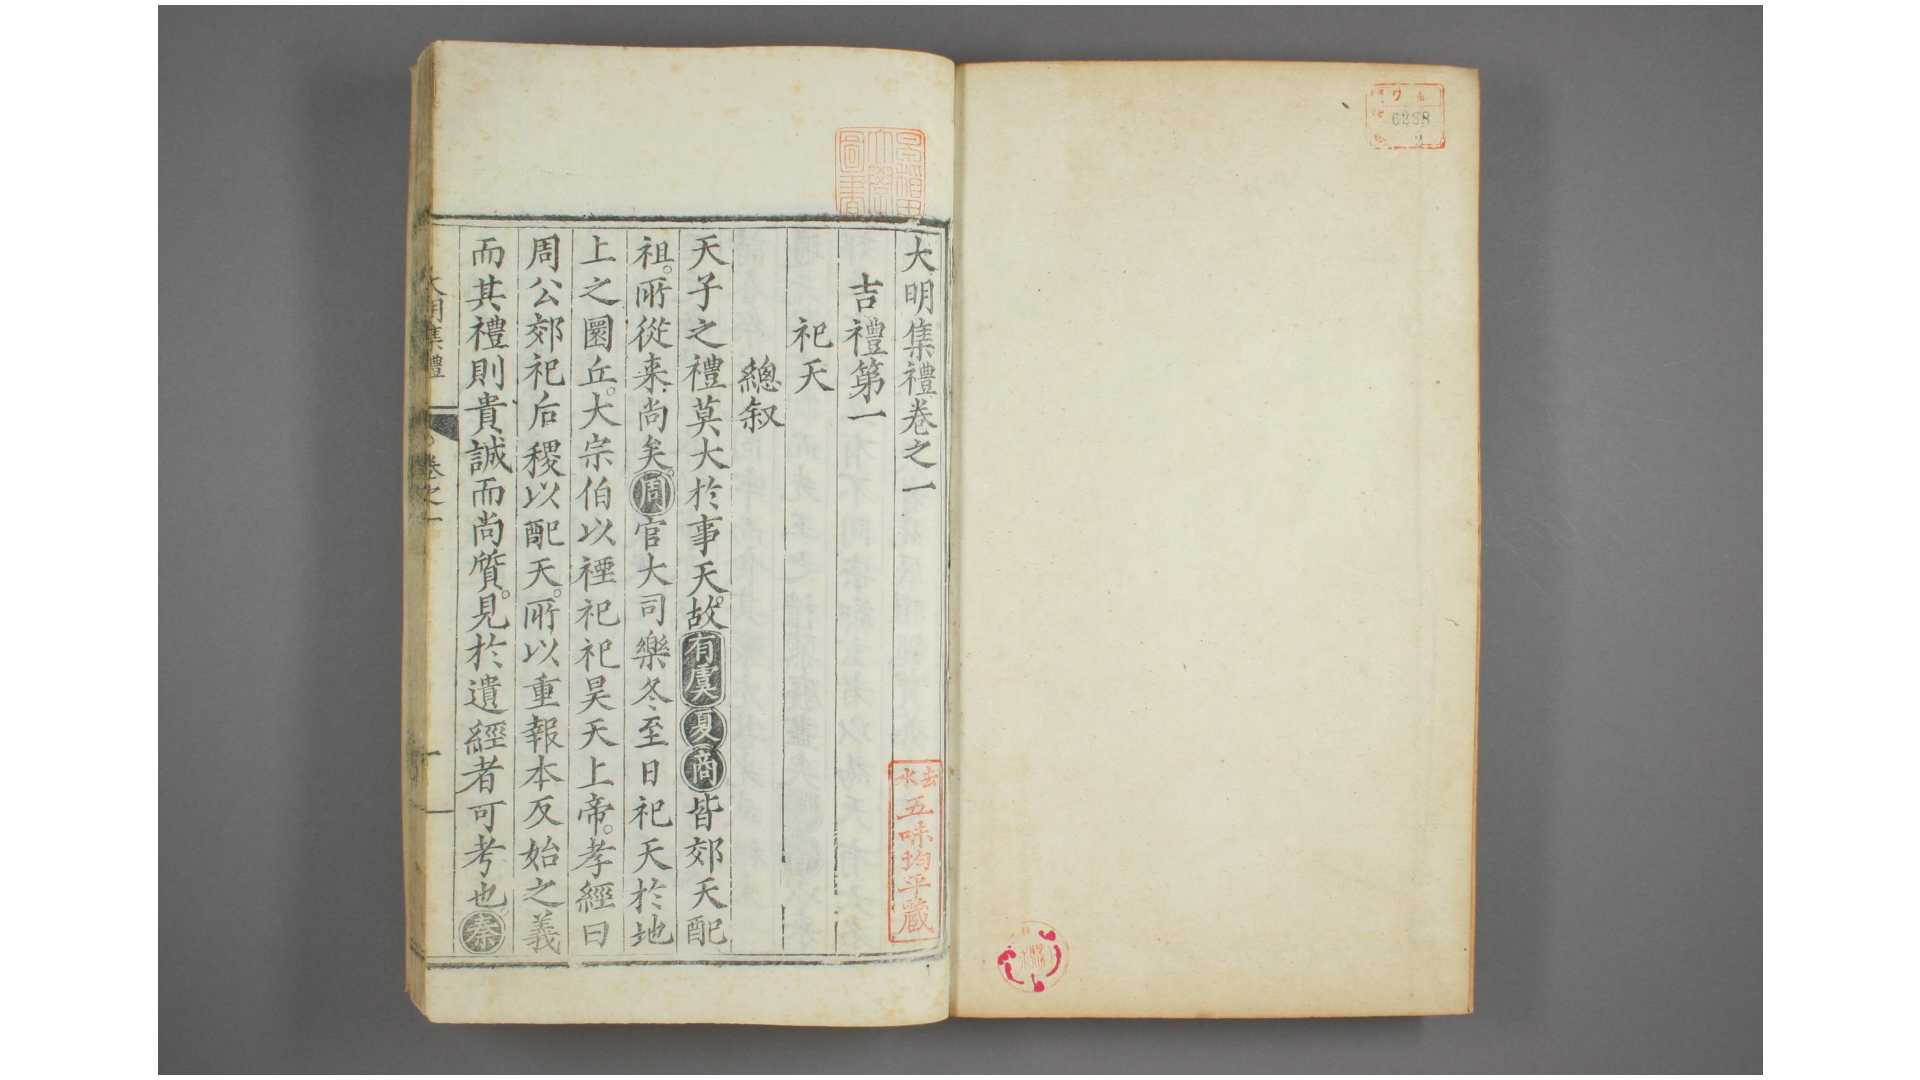 大明集禮卷之一
吉禮第一
祀天
總叙
天子之禮莫大於事天。故有虞夏商皆郊天配
祖。所從来尚矣。周官大司樂冬至日祀天於地
上之圜丘。大宗伯以禋祀祀昊天上帝。孝經曰
周公郊祀后稷以配天。所以重報本反始之義
而其禮則貴誠而尚質。見於遺經者可考也。秦
大明集禮
卷之一
一
早稲田大學圖書
玄水
五味均平藏
6268
2